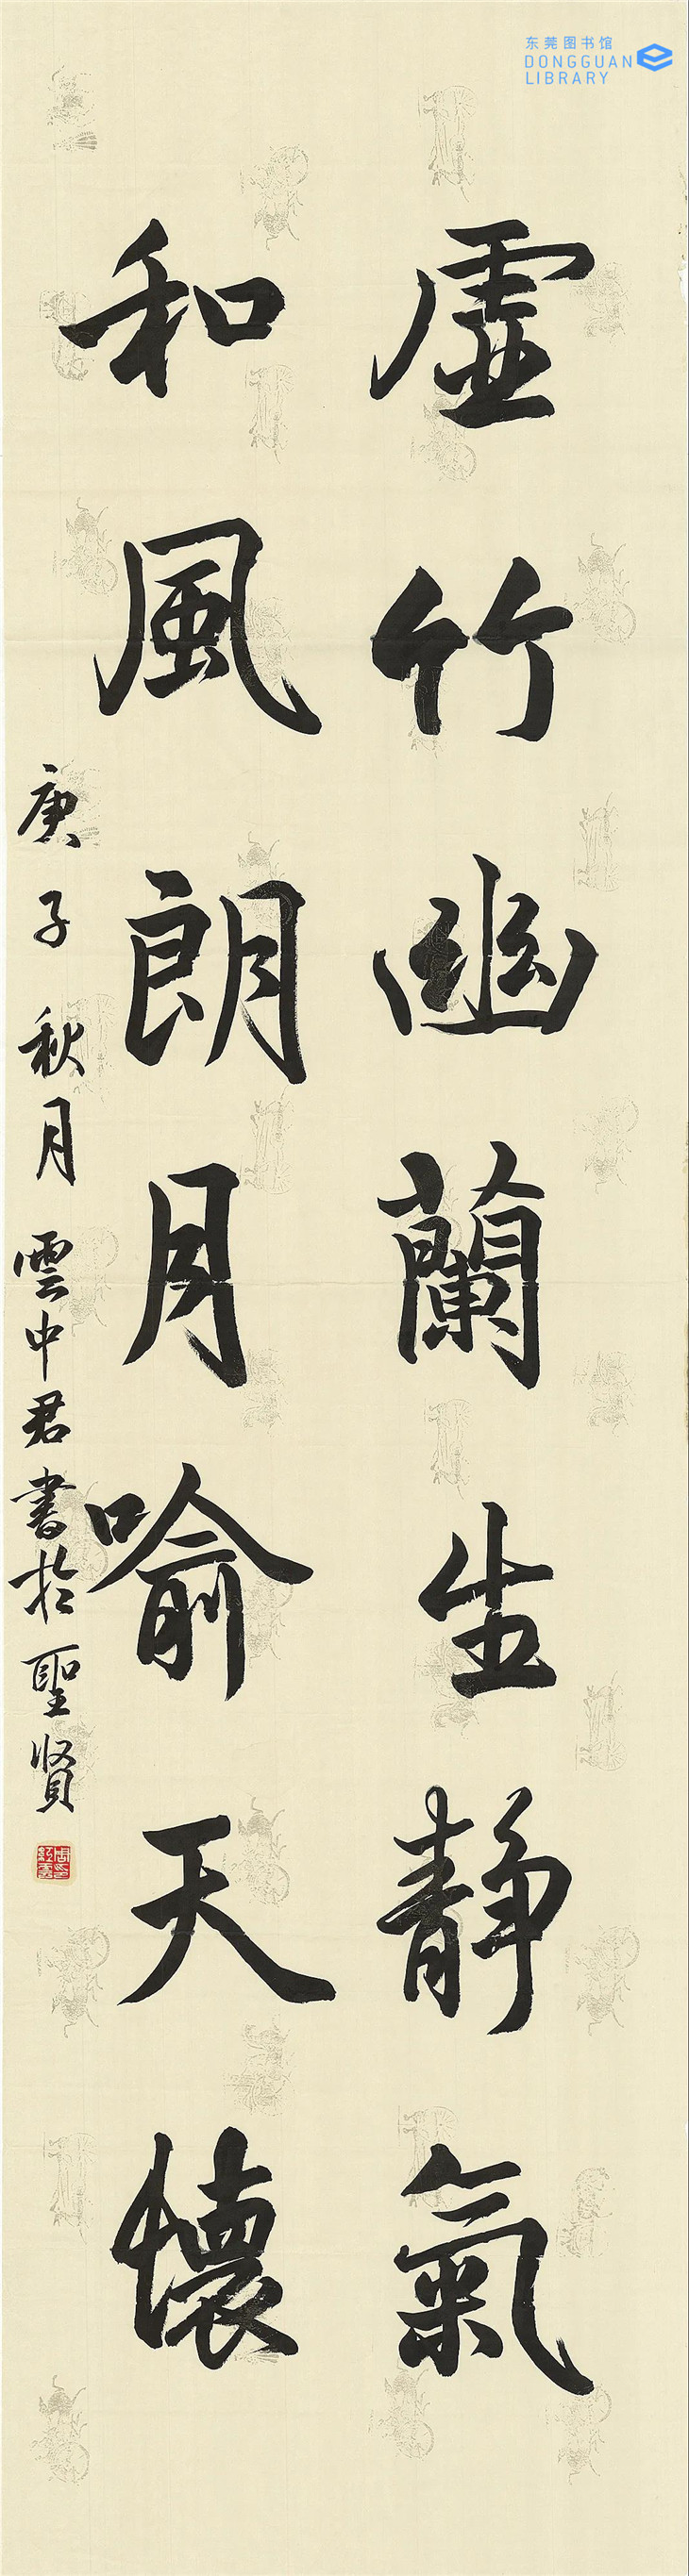 东莞图书馆
DONGGUAN
LIBRARY
虛竹幽蘭生靜氣
和風朗月喻天懷
庚子秋月雲中君書於聖賢